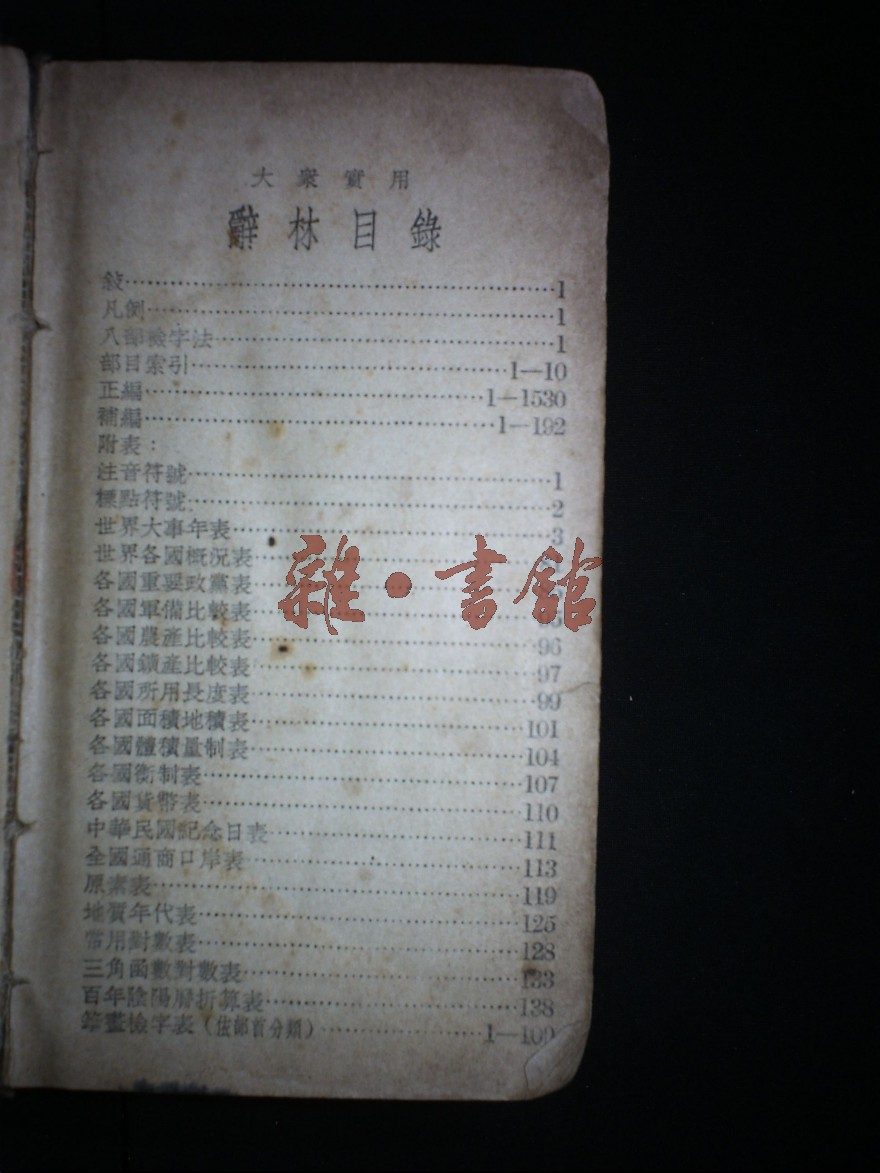 大衆實用
辭林目錄
敍……1
凡例……1
八部檢字法……1
部目索引……1—10
正編……1—1530
補編……1—192
附表：
注音符號……1
標點符號……2
世界大事年表……3
世界各國概況表……
各國重要政黨表……
各國軍備比較表……
各國農產比較表……96
各國鑛產比較表……97
各國所用長度表……99
各國面積地積表……101
各國體積量制表……104
各國衡制表……107
各國貨幣表……110
中華民國記念日表……111
全國通商口岸表……113
原素表……119
地質年代表……125
常用對數表……128
三角函數對數表……133
百年陰陽曆折算表……138
筆畫檢字表（依部首分類）……1—100
雜·書館